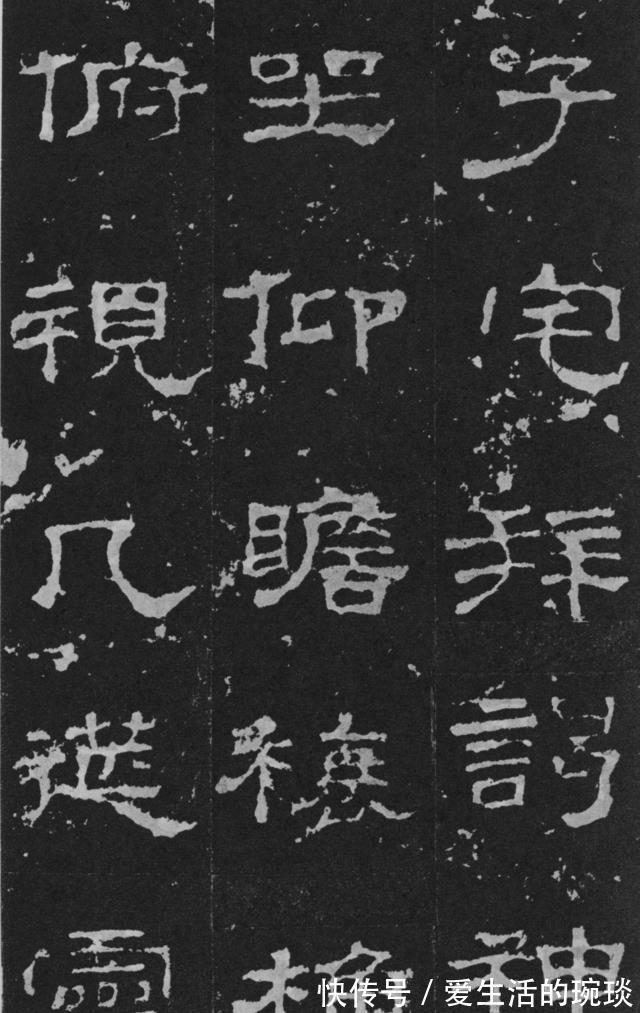 子宅拜謁神
坐仰瞻榱桷
俯視几筵靈
快传号 / 爱生活的琬琰